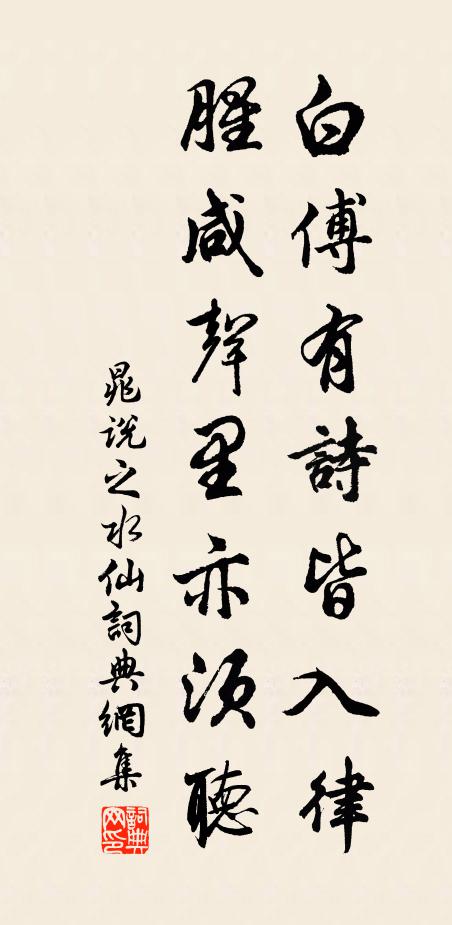 白傅有詩皆入律
腥咸聲里亦須聽
晁說之水仙詞典網集
詞典網印